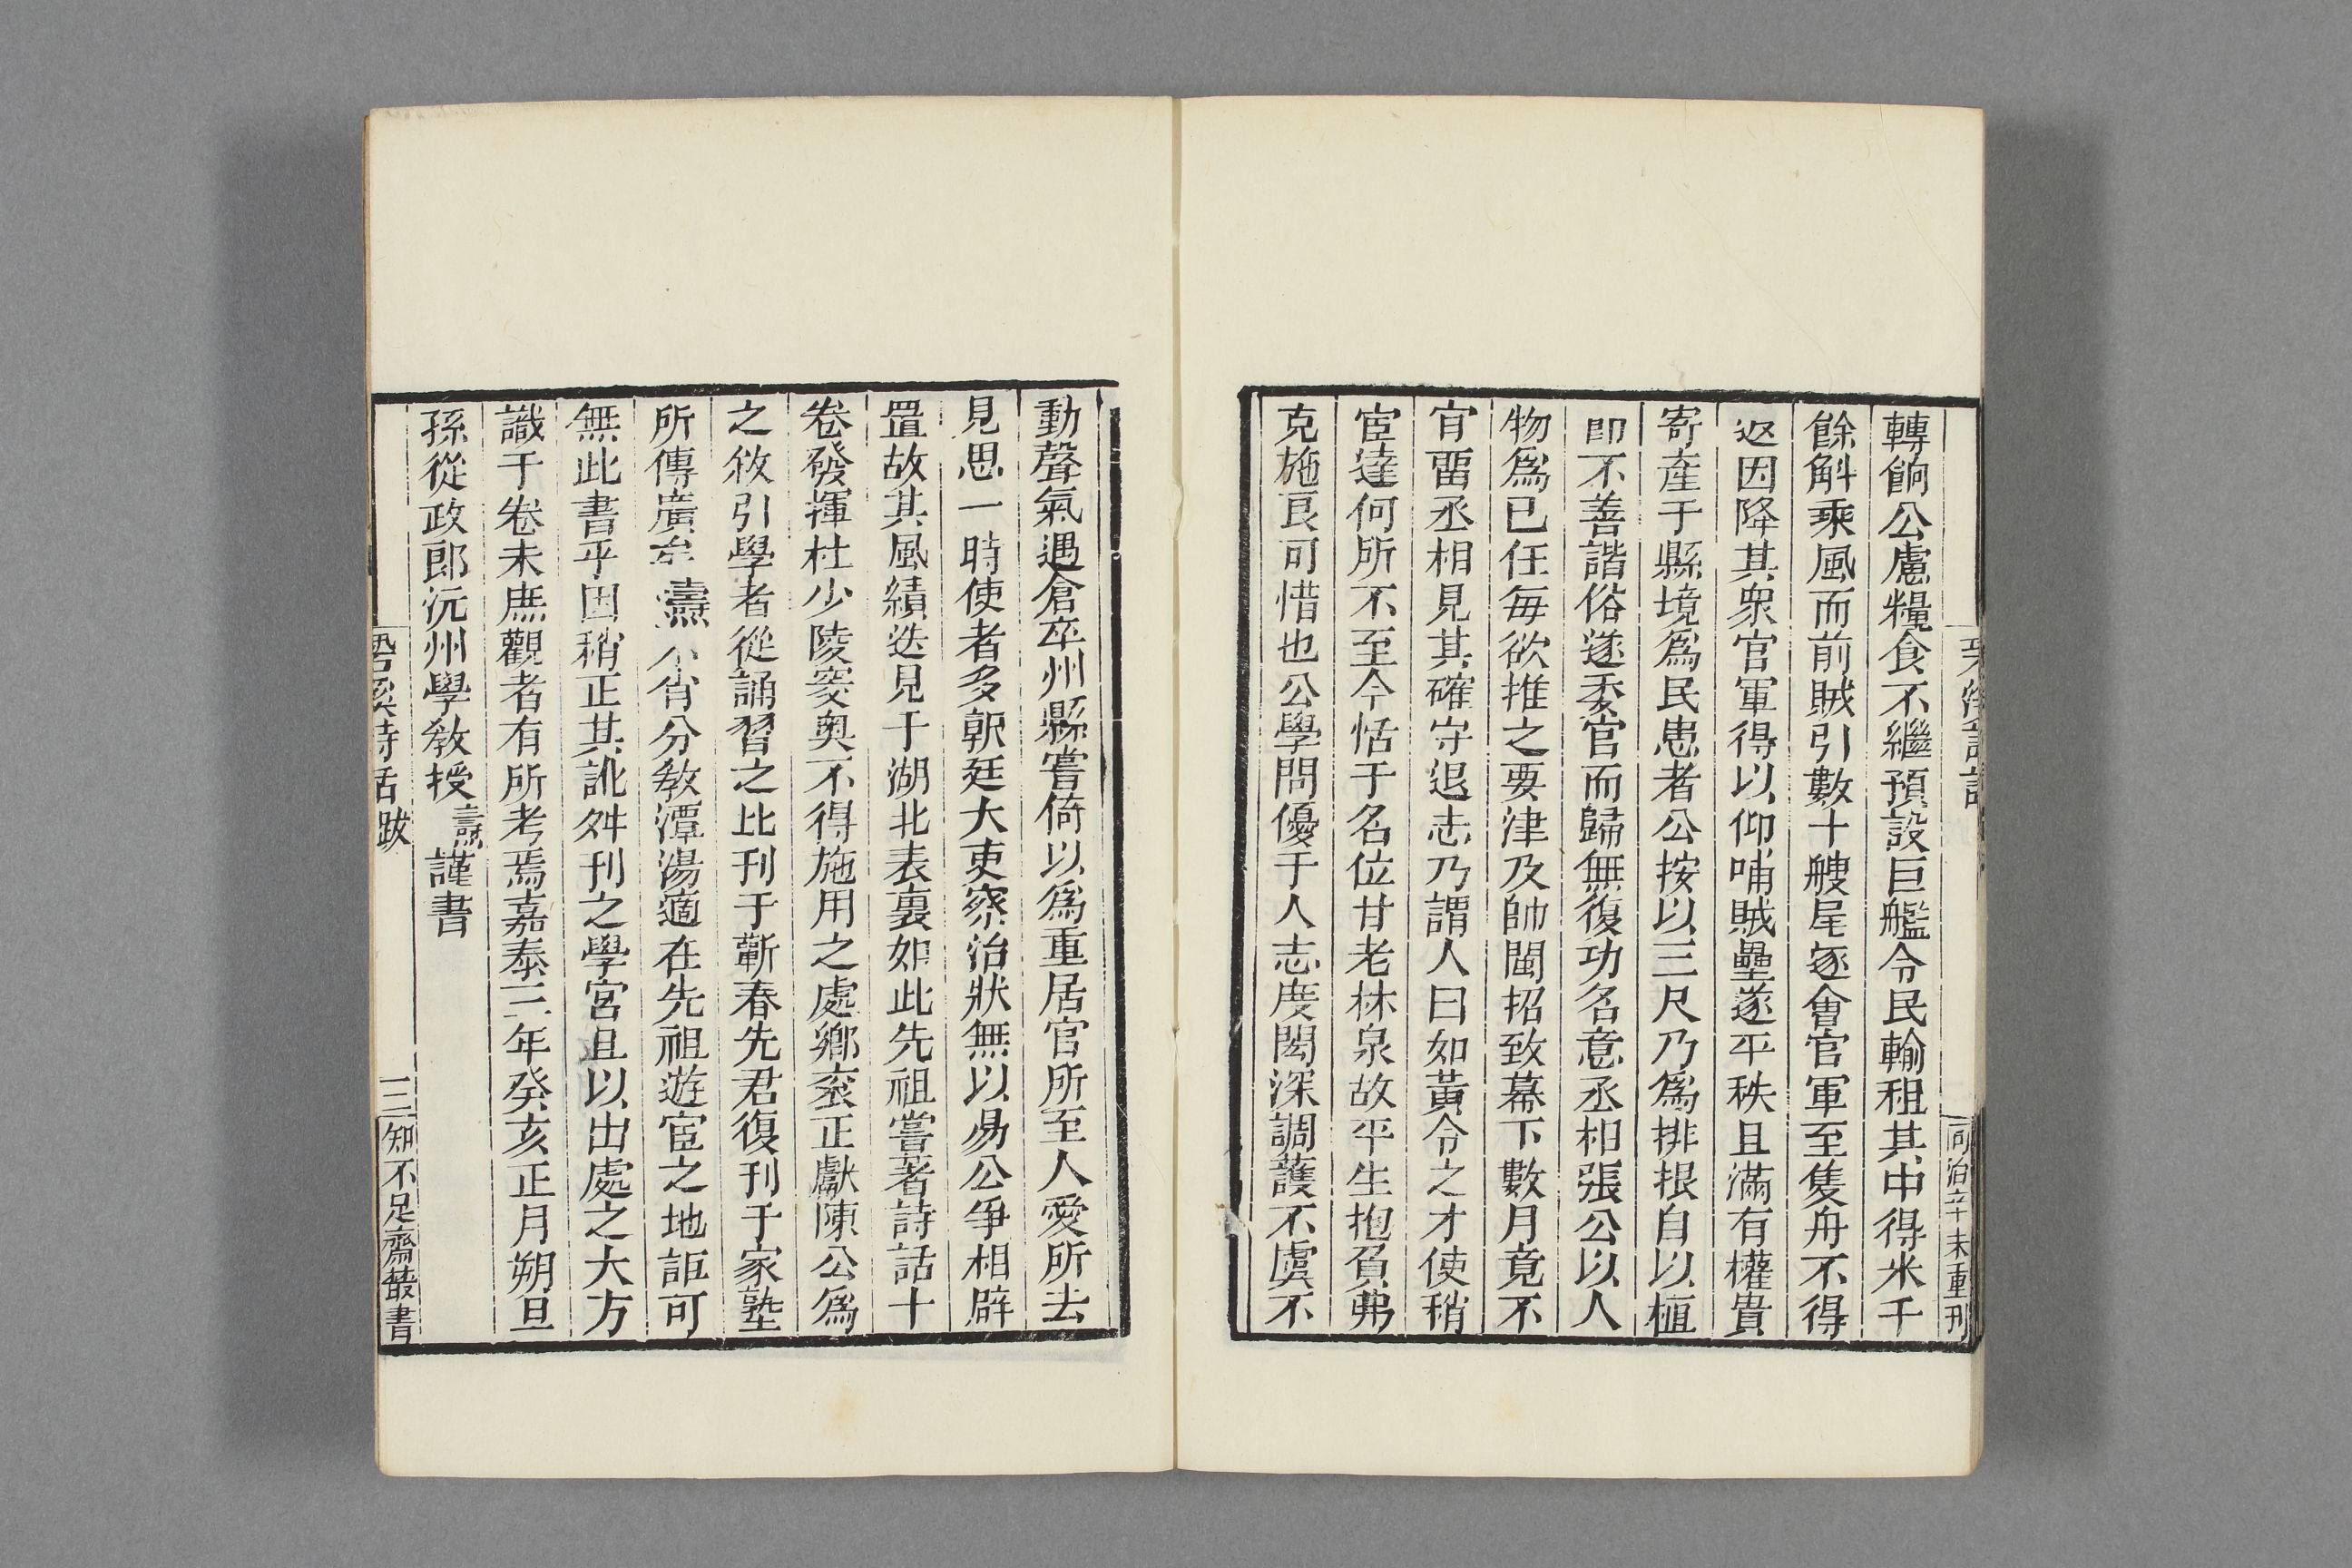 轉餉公慮糧食不繼預設巨艦令民輸租其中得米千
餘斛乘風而前賊引數十艘尾逐會官軍至隻舟不得
返因降其衆官軍得以仰哺賊壘遂平秩且滿有權貴
寄產于縣境爲民患者公按以三尺乃爲排抿自以植
卽不善諧俗遂委官而歸無復功名意丞相張公以人
物爲已任每欲推之要津及帥閫招致幕下數月竟不
肎畱丞相見其確守退志乃謂人曰如黃令之才使稍
宦達何所不至今恬于名位甘老林泉故平生抱負弗
克施良可惜也公學問優于人志度閎深調護不虞不
動聲氣遇倉卒州縣嘗倚以爲重居官所至人愛所去
見思一時使者多朝廷大吏察治狀無以易公爭相辟
置故其風績迭見于湖北表裏如此先祖嘗著詩話十
卷發揮杜少陵窔奧不得施用之處鄉袞正獻陳公爲
之敘引學者從誦習之比刊于蘄春先君復刊于家塾
所傳廣矣燾不肖分敎潭湯適在先祖遊宦之地詎可
無此書乎因稍正其訛舛刊之學宮且以出處之大方
識于卷末庶觀者有所考焉嘉泰三年癸亥正月朔旦
孫從政郎沅州學敎授燾謹書
䂬溪詩話跋
三
知不足齋叢書